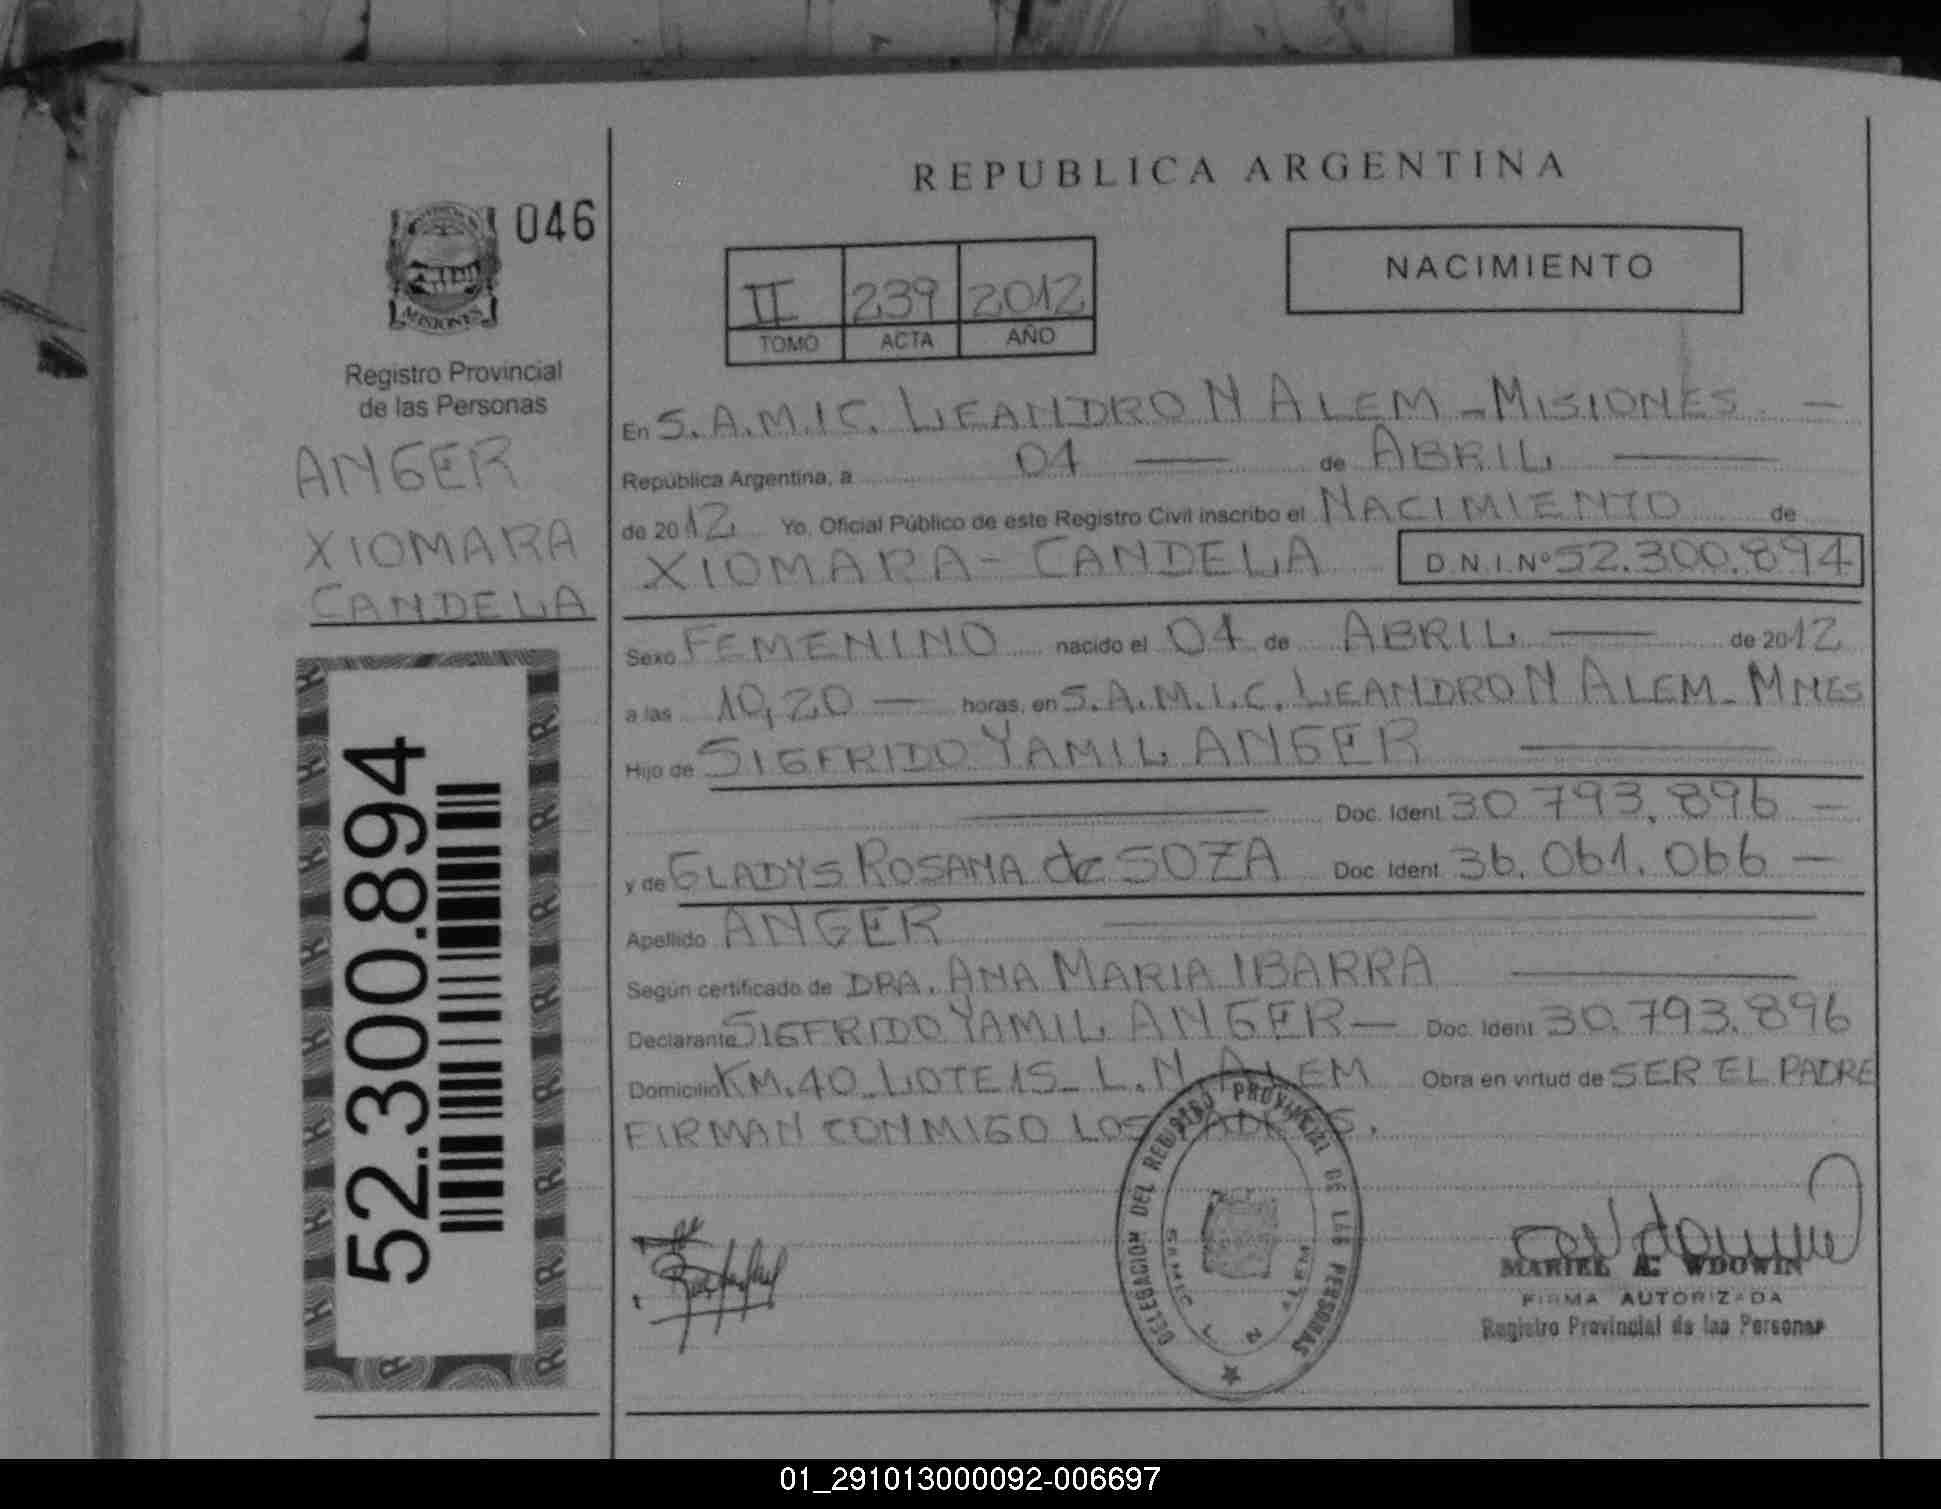 046
MISIONES
Registro Provincial
de las Personas
ANGER
XIOMARA
CANDELA
52.300.894
REPUBLICA ARGENTINA
II 239 2012
TOMO ACTA AÑO
NACIMIENTO
En S.A.M.I.C. LEANDRO N ALEM - MISIONES. —
República Argentina, a 04 — de ABRIL —
de 2012 Yo, Oficial Público de este Registro Civil inscribo el NACIMIENTO de
XIOMARA - CANDELA D.N.I.Nº 52.300.894
Sexo FEMENINO nacido el 04 de ABRIL — de 2012
a las 10,20 — horas, en S.A.M.I.C. LEANDRO N ALEM - MNES
Hijo de SIGFRIDO YAMIL ANGER —
— Doc. Ident. 30.793.896 —
y de GLADYS ROSANA de SOZA Doc. Ident. 36.061.066 —
Apellido ANGER —
Según certificado de DRA. ANA MARIA IBARRA —
Declarante SIGFRIDO YAMIL ANGER — Doc. Ident 30.793.896
Domicilio KM.40 - LOTE 15 - L.N. ALEM Obra en virtud de SER EL PADRE
FIRMAN CONMIGO LOS PADRES.
DELEGACION DEL REGISTRO PROVINCIAL DE LAS PERSONAS
SAMIC L N ALEM
MARIEL A. WDOWIN
FIRMA AUTORIZADA
Registro Provincial de las Personas
01_291013000092-006697